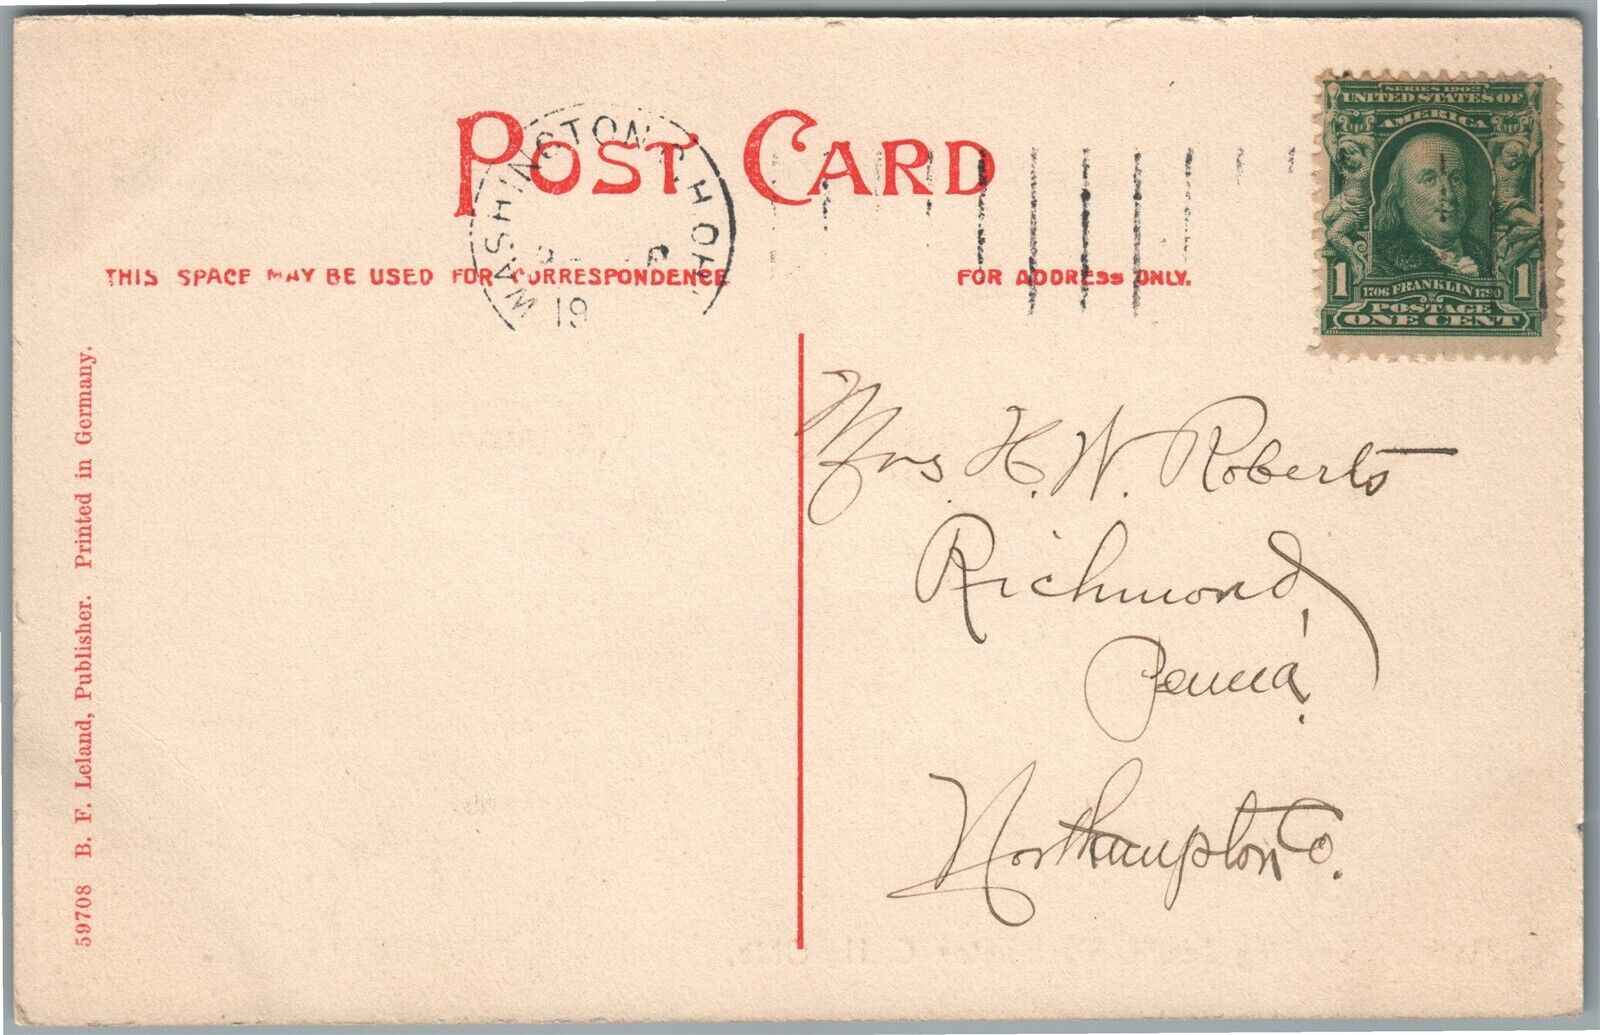 POST CARD
WASHINGTON C.H. OHIO
19
THIS SPACE MAY BE USED FOR CORRESPONDENCE
FOR ADDRESS ONLY.
SERIES 1902
UNITED STATES OF
AMERICA
1 1706 FRANKLIN 1790 1
POSTAGE
ONE CENT
Mrs H. W. Roberts
Richmond,
Penna.
Northampton Co.
59708 B. F. Leland, Publisher. Printed in Germany.